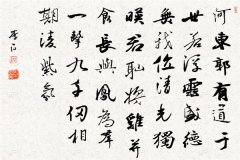 河東郭有道于
世若浮雲盛德
無我位清光獨
映君耻將雞并
食長與鳳為群
一擊九千仞相
期凌紫氛